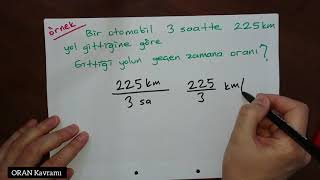 örnek
Bir otomobil 3 saatte 225 km
yol gittiğine göre
Gittiği yolun geçen zamana oranı?
225 km 225 km/
3 sa 3
ORAN Kavramı